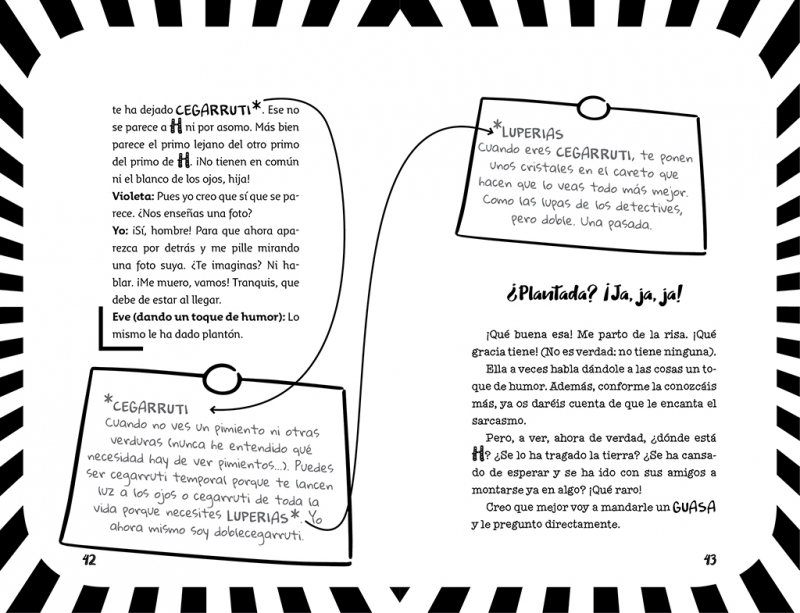 te ha dejado CEGARRUTI*. Ese no
se parece a H ni por asomo. Más bien
parece el primo lejano del otro primo
del primo de H. ¡No tienen en común
ni el blanco de los ojos, hija!
Violeta: Pues yo creo que sí que se pa-
rece. ¿Nos enseñas una foto?
Yo: ¡Sí, hombre! Para que ahora apa-
rezca por detrás y me pille mirando
una foto suya. ¿Te imaginas? Ni ha-
blar. ¡Me muero, vamos! Tranquis, que
debe de estar al llegar.
Eve (dando un toque de humor): Lo
mismo le ha dado plantón.
*CEGARRUTI
Cuando no ves un pimiento ni otras
verduras (nunca he entendido qué
necesidad hay de ver pimientos...). Puedes
ser cegarruti temporal porque te lancen
luz a los ojos o cegarruti de toda la
vida porque necesites LUPERIAS*. Yo
ahora mismo soy doblecegarruti.
42
*LUPERIAS
Cuando eres CEGARRUTI, te ponen
unos cristales en el careto que
hacen que lo veas todo más mejor.
Como las lupas de los detectives,
pero doble. Una pasada.
¿Plantada? ¡Ja, ja, ja!
¡Qué buena esa! Me parto de la risa. ¡Qué
gracia tiene! (No es verdad: no tiene ninguna).
Ella a veces habla dándole a las cosas un to-
que de humor. Además, conforme la conozcáis
más, ya os daréis cuenta de que le encanta el
sarcasmo.
Pero, a ver, ahora de verdad, ¿dónde está
H? ¿Se lo ha tragado la tierra? ¿Se ha cansa-
do de esperar y se ha ido con sus amigos a
montarse ya en algo? ¡Qué raro!
Creo que mejor voy a mandarle un GUASA
y le pregunto directamente.
43